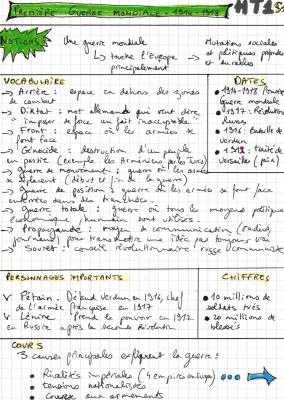 PREMIÈRE GUERRE MONDIALE : 1914-1918
HT1
NOTIONS
Une guerre mondiale
↳ touche l'Europe
principalement
Mutations sociales
et politiques profondes
et durables
VOCABULAIRE
→ Arrière : espace en dehors des zones
de combat
→ Diktat : mot allemand qui veut dire
imposer de force un fait inacceptable
→ Front : espace où les armées se
font face
→ Génocide : destruction d'un peuple
en partie (exemple les Arméniens par les Turcs)
→ guerre de mouvement : guerre où les armées
se déplacent (début et fin de la guerre)
→ guerre de position : guerre où les armées se font face
enterrées dans des tranchées.
→ guerre totale : guerre où tous les moyens politiques
économiques, humains sont utilisés.
→ Propagande : moyen de communication (radios,
journaux) pour transmettre une idée pas toujours vrai
→ Soviet : conseil révolutionnaire russe communiste
DATES
• 1914-1918 : Première
Guerre mondiale
• 1917 : Révolution
Russe
• 1916 : bataille de
verdun
: traité de
versailles (paix)
PERSONNAGES IMPORTANTS
V Pétain : Défend verdun en 1916, chef
de l'armée française en 1917
V Lénine : Prend le pouvoir en 1917
en Russie après la seconde révolution
CHIFFRES
• 10 millions de
soldats tués
• 20 millions de
blessés
COURS
3 causes principales expliquent la guerre :
• Rivalités impériales (4 empires
• tensions nationalistes
• course aux armements